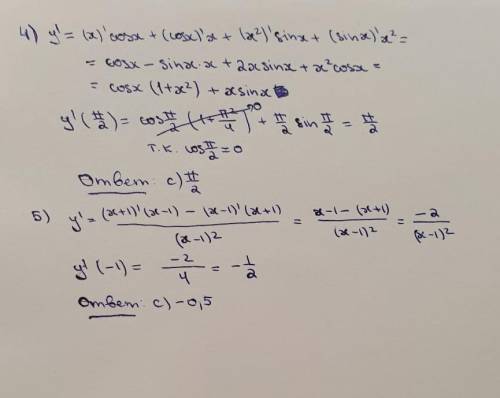 4) y' = (x)'cosx + (cosx)'x + (x²)'sinx + (sinx)'x² =
= cosx - sinx·x + 2x sinx + x²cosx =
= cosx (1+x²) + x sinx
y'(π/2) = cos π/2 (1+π²/4)→0 + π/2 sin π/2 = π/2
т.к. cos π/2 = 0
Ответ: c) π/2
5) y' = ((x+1)'(x-1) - (x-1)'(x+1))/(x-1)² = (x-1-(x+1))/(x-1)² = -2/(x-1)²
y'(-1) = -2/4 = -1/2
Ответ: c) -0,5